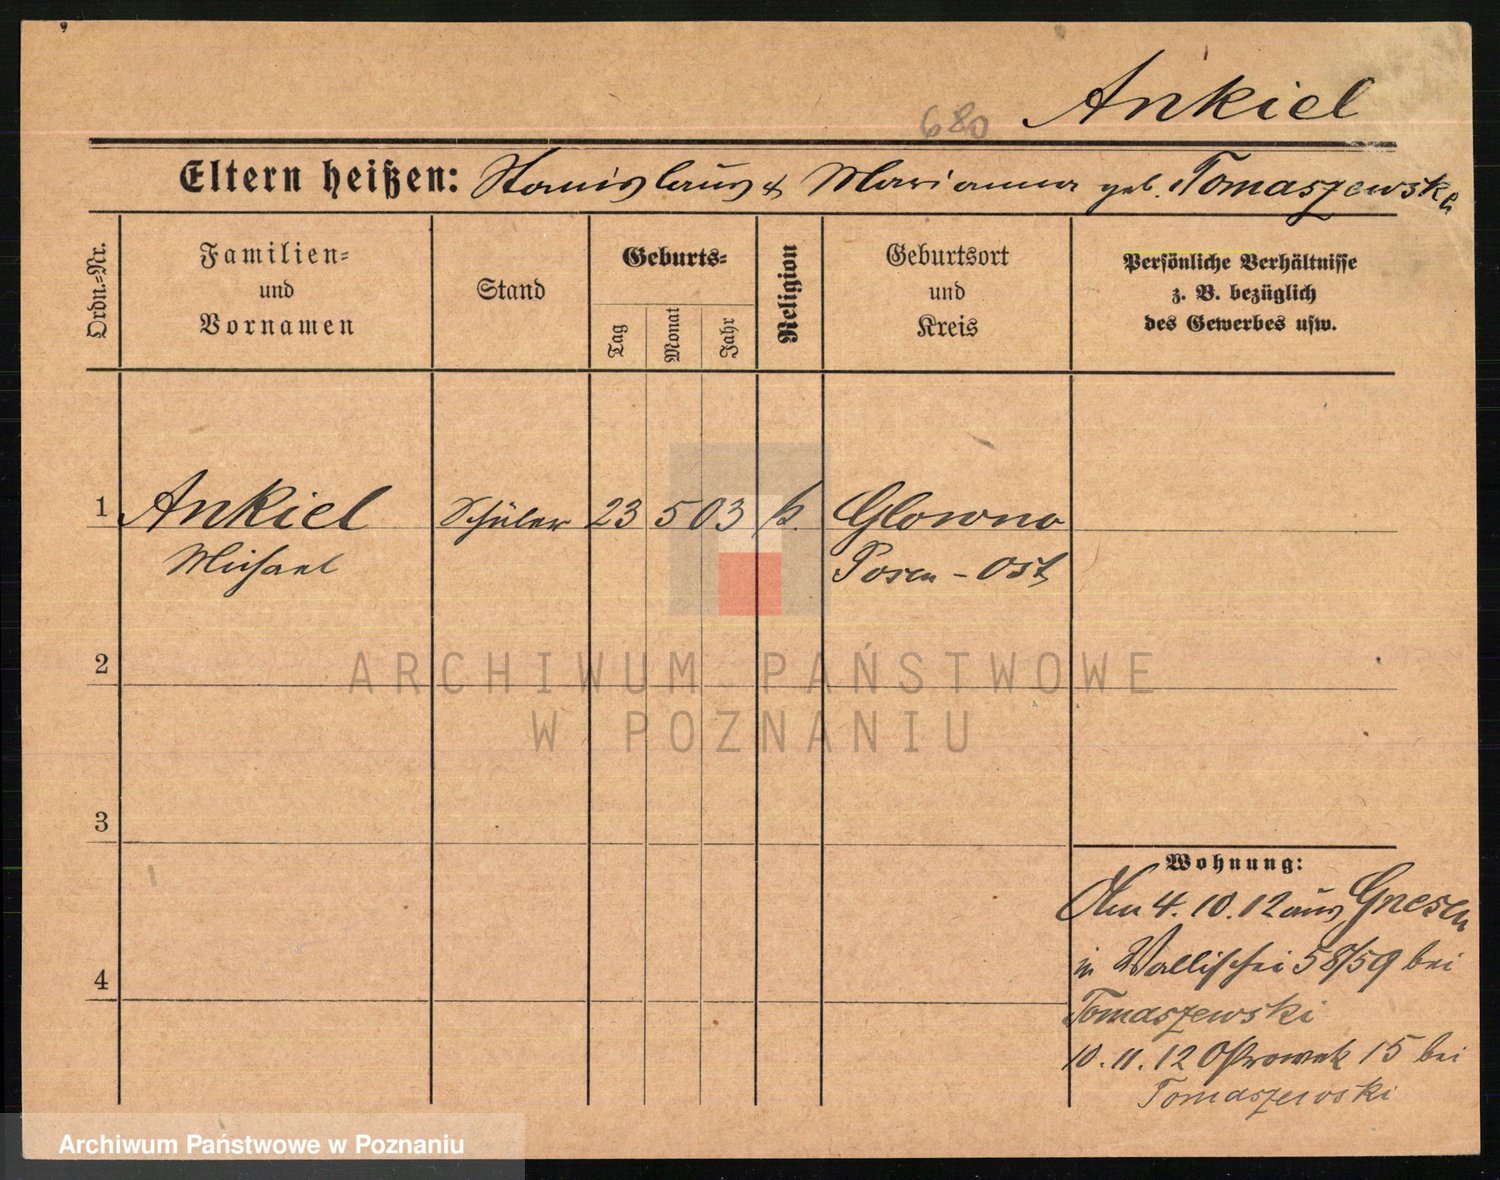 Ankiel
680
Eltern heißen: Stanislaus & Marianna geb. Tomaszewska
Ordn.-Nr.
Familien-
und
Vornamen
Stand
Geburts-
Tag
Monat
Jahr
Religion
Geburtsort
und
Kreis
Persönliche Verhältnisse
z. B. bezüglich
des Gewerbes usw.
1 Ankiel Schüler 23 5 03 k. Glowno
Michael Posen-Ost
ARCHIWUM PAŃSTWOWE
W POZNANIU
2
3
4
Wohnung:
Am 4. 10. 12 aus Gnesen
in Wallischei 58/59 bei
Tomaszewski
10. 11. 12 Ostrowek 15 bei
Tomaszewski
Archiwum Państwowe w Poznaniu